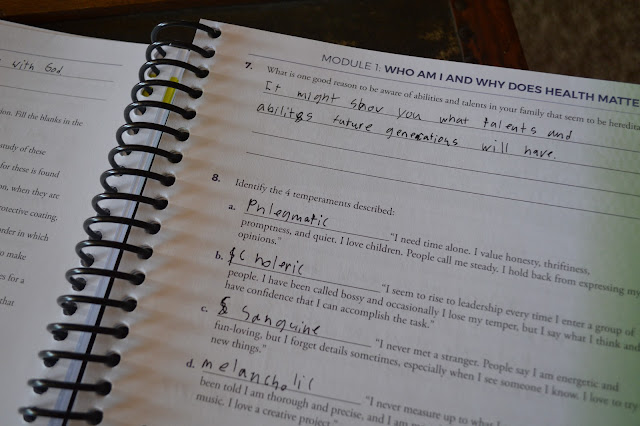 with God
ion. Fill the blanks in the
study of these
for these is found
on, when they are
rotective coating,
order in which
o make
es for a
that
MODULE 1: WHO AM I AND WHY DOES HEALTH MATTE
7. What is one good reason to be aware of abilities and talents in your family that seem to be heredita
It might show you what talents and
abilities future generations will have.
8. Identify the 4 temperaments described:
a. Phlegmatic "I need time alone. I value honesty, thriftiness,
promptness, and quiet. I love children. People call me steady. I hold back from expressing my
opinions."
b. Choleric "I seem to rise to leadership every time I enter a group of
people. I have been called bossy and occasionally I lose my temper, but I say what I think and
have confidence that I can accomplish the task."
c. Sanguine "I never met a stranger. People say I am energetic and
fun-loving, but I forget details sometimes, especially when I see someone I know. I love to try
new things."
d. melancholic "I never measure up to what I
been told I am thorough and precise, and I am
music. I love a creative project."